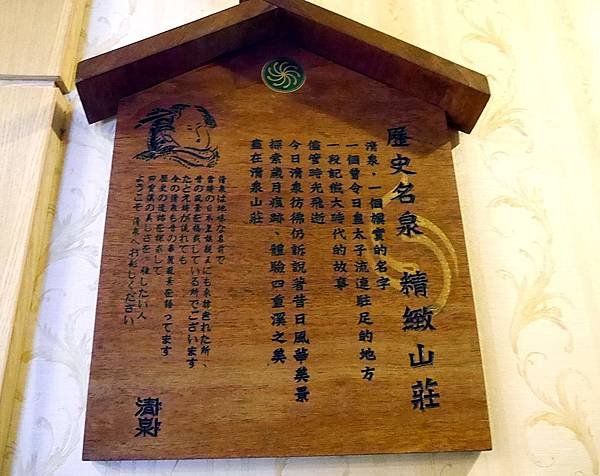 歷史名泉　精緻山莊
清泉，一個樸實的名字
一個曾令日皇太子流連駐足的地方
一段記縅大時代的故事
儘管時光飛逝
今日清泉彷彿仍訴說著昔日風華美景
探索歲月痕跡、體驗四重溪之美
盡在清泉山莊
清泉は地味な名前で
昔の風景を偲載している所でございます
たとえ時が流れても
今の清泉も昔の華麗風景を語ってます
歴史の遺跡を探索して
四重溪の美しさを一種したい人
ようこそ清泉へお越しください
清泉